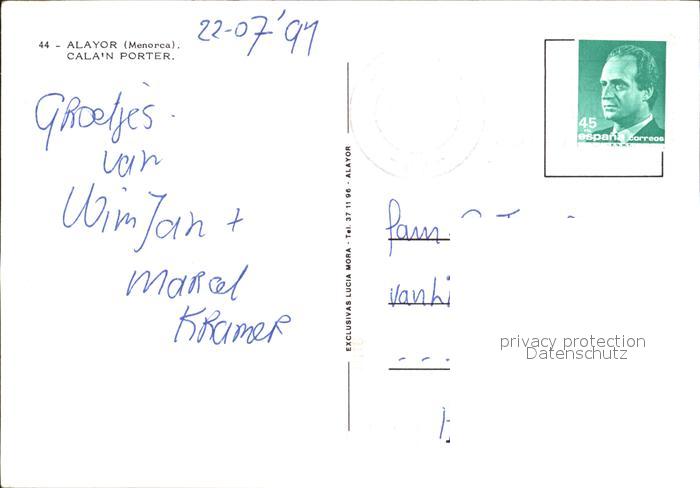 22-07'91
44 - ALAYOR (Menorca).
CALA'N PORTER.
Groetjes.
van
Wim Jan +
Marcel
Kramer
EXCLUSIVAS LUCIA MORA - Tel. 37 11 96 - ALAYOR
45
españa correos
fam.
privacy protection
Datenschutz